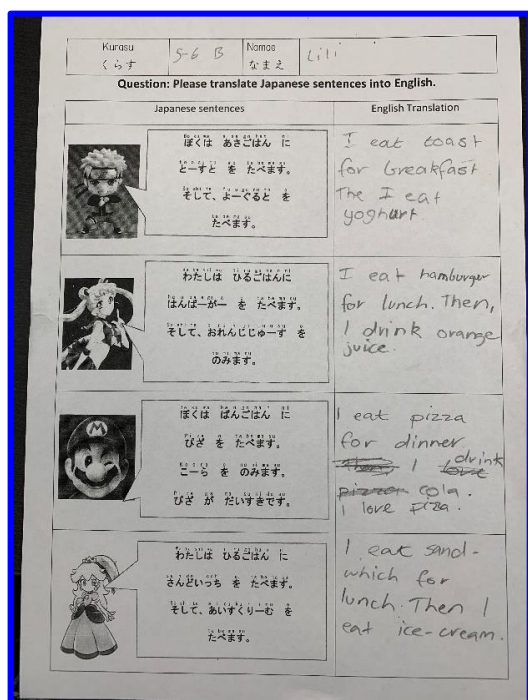 Kurasu
くらす
5-6 B
Namae
なまえ
Lili
Question: Please translate Japanese sentences into English.
Japanese sentences
English Translation
ぼくは あさごはん に
とーすと を たべます。
そして、よーぐると を
たべます。
I eat toast
for breakfast
The I eat
yoghurt.
わたしは ひるごはんに
はんばーがー を たべます。
そして、おれんじじゅーす を
のみます。
I eat hamburger
for lunch. Then,
I drink orange
juice.
M
ぼくは ばんごはん に
ぴざ を たべます。
こーら を のみます。
ぴざ が だいすきです。
I eat pizza
for dinner
I drink
cola.
I love pizza.
わたしは ひるごはん に
さんどいっち を たべます。
そして、あいすくりーむ を
たべます。
I eat sand-
which for
lunch. Then I
eat ice-cream.